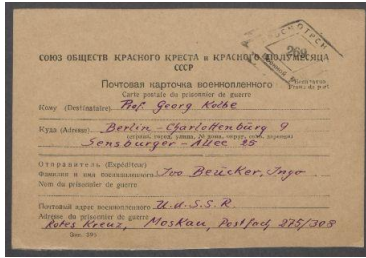 СОЮЗ ОБЩЕСТВ КРАСНОГО КРЕСТА и КРАСНОГО ПОЛУМЕСЯЦА
СССР
Почтовая карточка военнопленного
Carte postale du prisonnier de guerre
Бесплатно
Franc de port
Кому (Destinataire) Prof. Georg Kolbe
Куда (Adresse) Berlin-Charlottenburg 9
(страна, город, улица, № дома, округ, село, деревня)
Sensburger-Allee 25
Отправитель (Expéditeur)
Фамилия и имя военнопленного Ivo Beucker, Ingo
Nom du prisonnier de guerre
Почтовый адрес военнопленного U.d.S.S.R.
Adresse du prisonnier de guerre
Rotes Kreuz, Moskau, Postfach 275/308
269